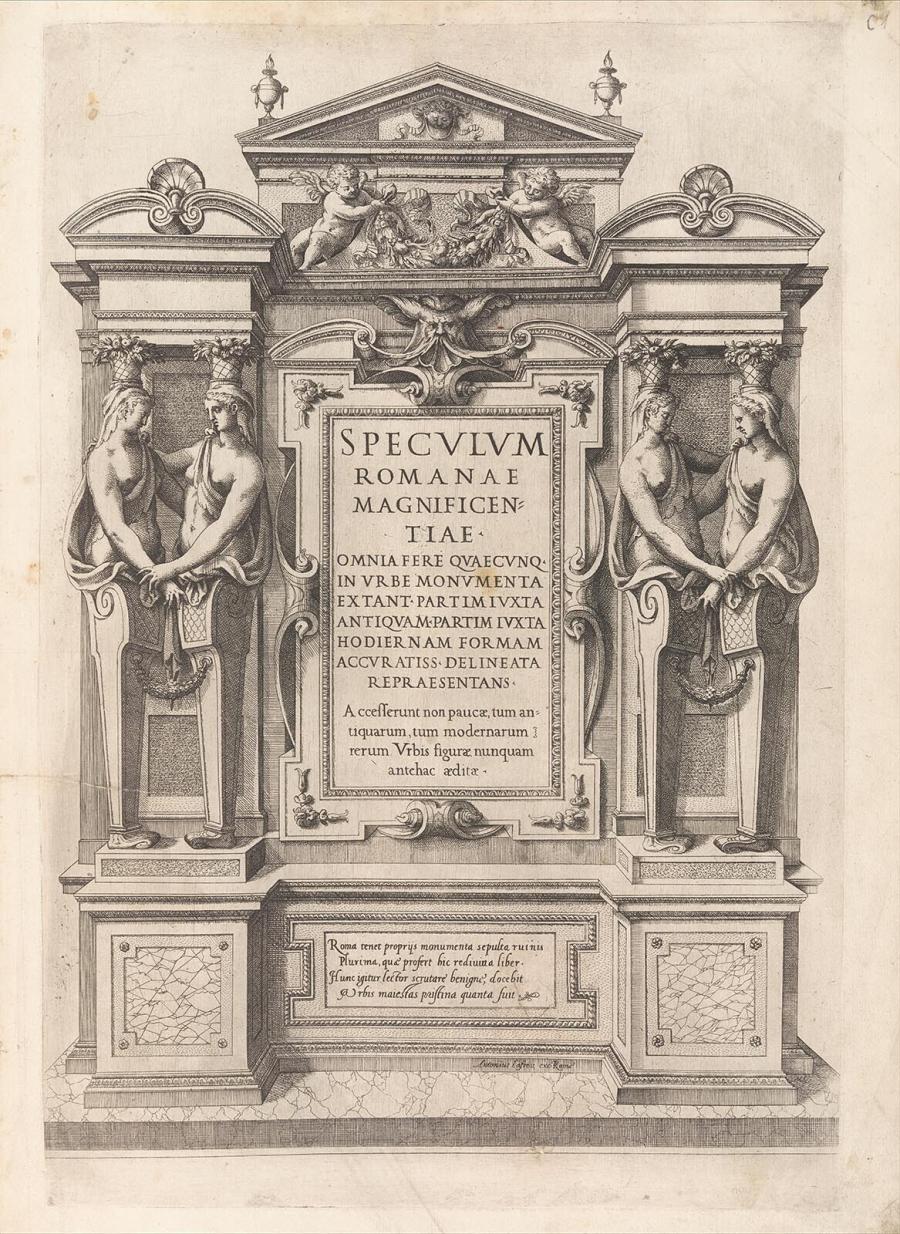 SPECVLVM
ROMANAE
MAGNIFICEN=
TIAE·
OMNIA FERE QVAECVNQ·
IN VRBE MONVMENTA
EXTANT· PARTIM IVXTA
ANTIQVAM·PARTIM IVXTA
HODIERNAM FORMAM
ACCVRATISS· DELINEATA
REPRAESENTANS·
Accesserunt non paucæ, tum an=
tiquarum, tum modernarum
rerum Vrbis figuræ nunquam
antehac æditæ·
Roma tenet proprijs monumenta sepulta ruinis
Plurima, quæ profert hic rediuiua liber·
Hunc igitur lector scrutare benigne, docebit
Vrbis maiestas pristina quanta fuit
exc· Romæ